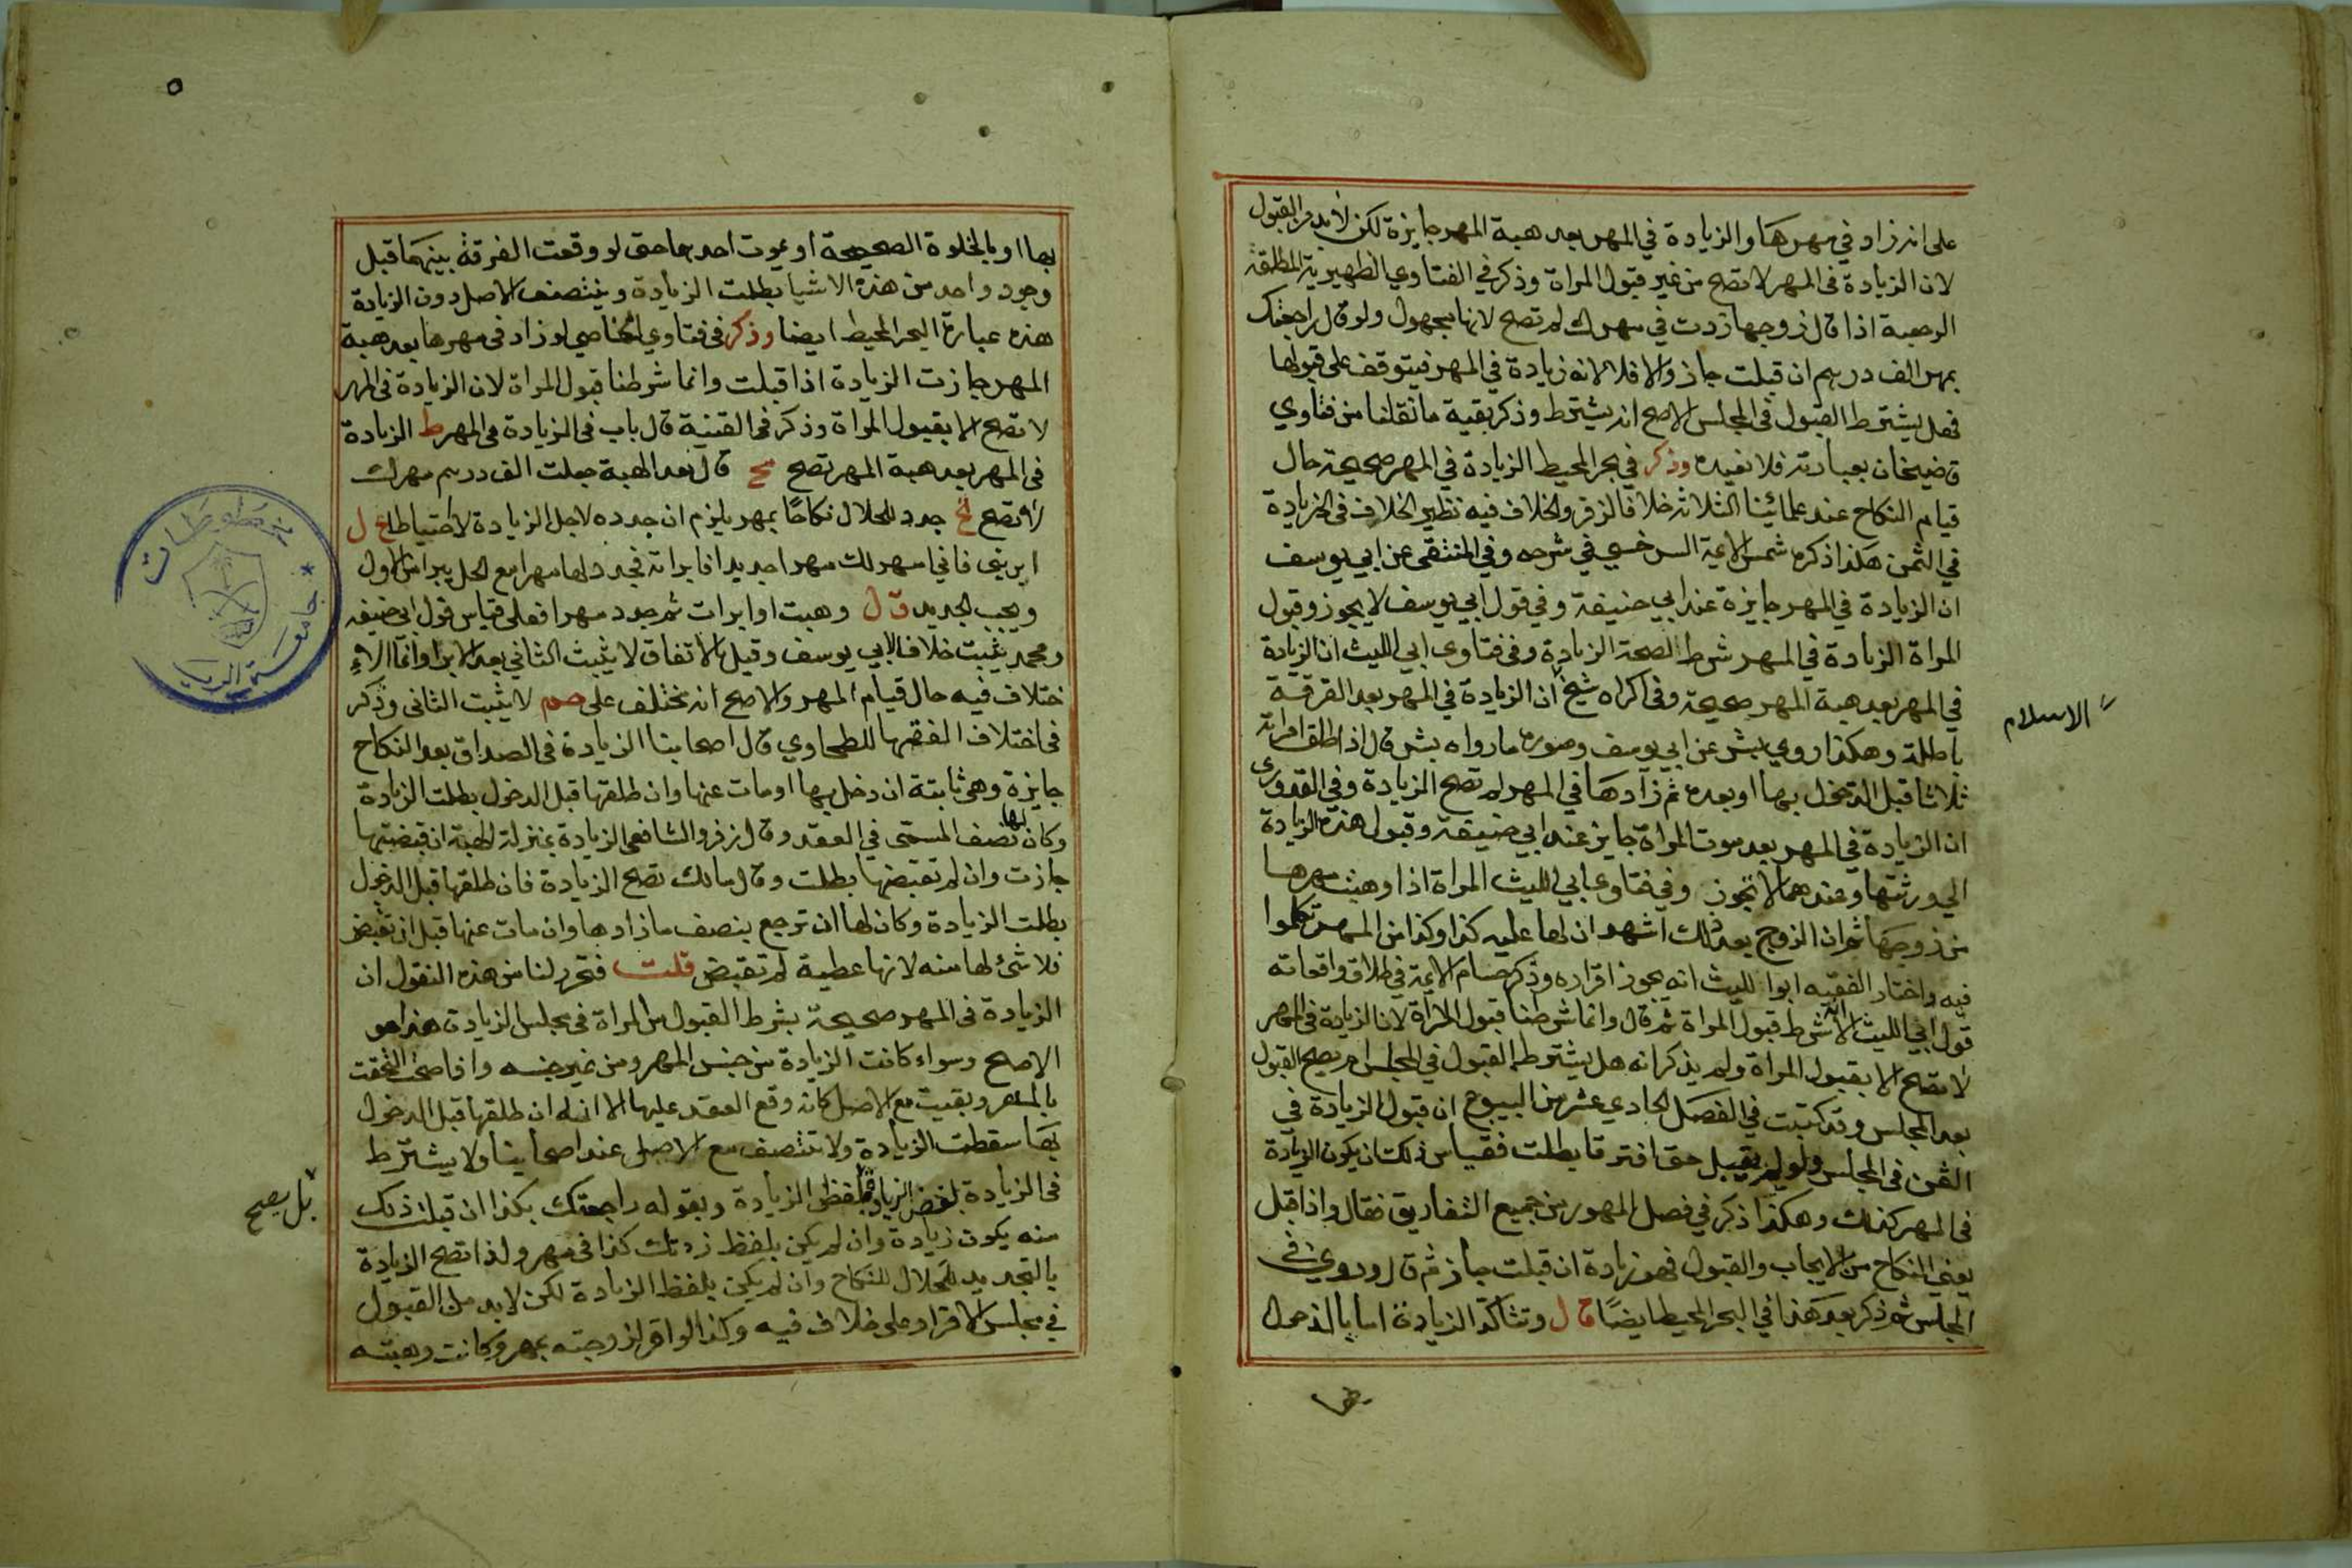 على انه زاد في مهرها والزيادة في المهر بعد هبة المهر جايزة لكن لابد من القبول
لان الزيادة في المهر لا تصح من غير قبول المراة وذكر في الفتاوي الظهيرية المطلقة
الرجعية اذا قال زوجها زدت في مهرك لم تصح لانها مجهول ولو قال راجعتك
بمهر الف درهم ان قبلت جاز والا فلا لانه زيادة في المهر فيتوقف على قبولها
فهل يشترط القبول في المجلس الاصح انه يشترط وذكر بقية ما نقلنا من فتاوي
قاضيخان بعبارته فلا نفيده وذكر في بحر المحيط الزيادة في المهر صحيحة حال
قيام النكاح عند علمائنا الثلاثة خلافا لزفر والخلاف فيه نظير الخلاف في الزيادة
في الثمن هكذا ذكره شمس الايمة السرخسي في شرحه وفي المنتقى عن ابي يوسف
ان الزيادة في المهر جايزة عند ابي حنيفة وفي قول ابي يوسف لا يجوز وقبول
المراة الزيادة في المهر شرط لصحة الزيادة وفي فتاوى ابي الليث ان الزيادة
في المهر بعد هبة المهر صحيحة وفي اكراه شيخ ان الزيادة في المهر بعد الفرقة
الاسلام
باطلة وهكذا روي بشر عن ابي يوسف وصورة ما رواه بشر قال اذا طلق امراته
ثلاثا قبل الدخول بها او بعده ثم زادها في المهر لم تصح الزيادة وفي القدوري
ان الزيادة في المهر بعد موت المراة جايز عند ابي حنيفة وقبول هذه الزيادة
الي ورثتها وعندهما لا تجوز وفي فتاوى ابي الليث المراة اذا وهبت مهرها
من زوجها ثم ان الزوج بعد ذلك اشهد ان لها عليه كذا وكذا من المهر تكلموا
فيه واختار الفقيه ابوا الليث انه يجوز اقراره وذكر حسام الايمة في طلاق واقعاته
قول ابي الليث الا انه شرط قبول المراة ثم قال وانما شرطنا قبول المراة لان الزيادة في المهر
لا تصح الا بقبول المراة ولم يذكر انه هل يشترط القبول في المجلس ام يصح القبول
بعد المجلس وقد كتبت في الفصل الحادي عشر من البيوع ان قبول الزيادة في
الثمن في المجلس ولو لم يقبل حتى افترقا بطلت فقياس ذلك ان يكون الزيادة
في المهر كذلك وهكذا ذكر في فصل المهور من جميع التفاريق فقال واذا قبل
يعني النكاح من الايجاب والقبول فهو زيادة ان قبلت جاز ثم قال وروي في
المجلس ثم ذكر بعد هذا في البحر المحيط ايضًا قال وتتاكد الزيادة اما بالدخول
بها او بالخلوة الصحيحة او بموت احدهما حتى لو وقعت الفرقة بينهما قبل
وجود واحد من هذه الاشيا بطلت الزيادة وينتصف الاصل دون الزيادة
هذه عبارة البحر المحيط ايضا وذكر في فتاوي الخاصي لو زاد في مهرها بعد هبة
المهر جازت الزيادة اذا قبلت وانما شرطنا قبول المراة لان الزيادة في المهر
لا تصح الا بقبول المراة وذكر في القنية قال باب في الزيادة في المهر ط الزيادة
في المهر بعد هبة المهر تصح مح قال بعد الهبة جعلت الف درهم مهرك
لا تصح جدد للحلال نكاحًا بمهر يلزم ان جدده لاجل الزيادة لا احتياطا ع ل
ابريني فاني امهر لك مهرا جديدا فابراته فجدد لها مهرا مع الحل يبرا من الاول
ويجب الجديد قال وهبت او ابرات ثم جدد مهرا فعلى قياس قول ابي حنيفة
ومحمد يثبت خلافا لابي يوسف وقيل بالاتفاق لا يثبت الثاني بعد الابرا وانما الا
ختلاف فيه حال قيام المهر والاصح انه يختلف على صم لا يثبت الثاني وذكر
في اختلاف الفقها للطحاوي قال اصحابنا الزيادة في الصداق بعد النكاح
جايزة وهي ثابتة ان دخل بها او مات عنها وان طلقها قبل الدخول بطلت الزيادة
وكان لها نصف المسمى في العقد وقال زفر والشافعي الزيادة بمنزلة الهبة ان قبضتها
جازت وان لم تقبضها بطلت وقال مالك تصح الزيادة فان طلقها قبل الدخول
بطلت الزيادة وكان لها ان ترجع بنصف ما زادها وان مات عنها قبل ان تقبض
فلا شئ لها منه لانها عطية لم تقبض قلت فتحرر لنا من هذه النقول ان
الزيادة في المهر صحيحة بشرط القبول من المراة في مجلس الزيادة هذا هو
الاصح وسواء كانت الزيادة من جنس المهر ومن غير جنسه واذا صحت التحقت
بالمهر وبقيت مع الاصل كانه وقع العقد عليها الا انه ان طلقها قبل الدخول
بها سقطت الزيادة ولا تنتصف مع الاصل عند اصحابنا ولا يشترط
في الزيادة بلفظ الزيادة وبقوله راجعتك بكذا ان قبلت ذلك
بل يصح
منه يكون زيادة وان لم يكن بلفظ زدتك كذا في مهر ولذا تصح الزيادة
بالتجديد للحلال للنكاح وان لم يكن بلفظ الزيادة لكن لابد من القبول
في مجلس الاقرار على خلاف فيه وكذا لو اقر لزوجته بمهر وكانت وهبته
مخطوطات
جامعة الرياض